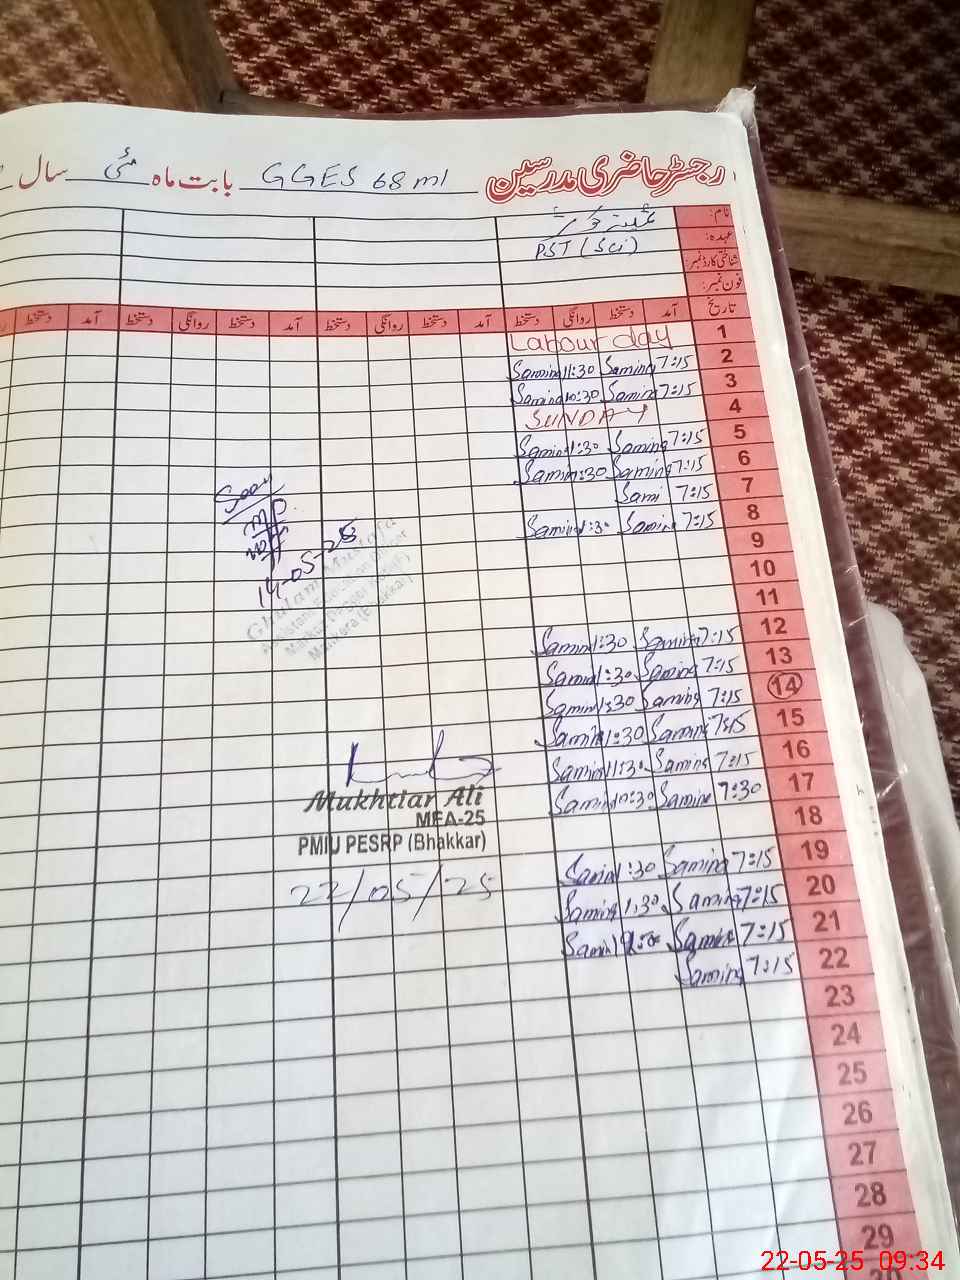 رجسٹر حاضری مدرسین GGES 68 ml بابت ماہ مئی سال
نام:
عہدہ: PST (Sci)
شناختی کارڈ نمبر:
فون نمبر:
تاریخ آمد دستخط روانگی دستخط آمد دستخط روانگی دستخط آمد دستخط روانگی دستخط آمد دستخط
1 Labour day
2 7:15 Samina 11:30 Samina
3 7:15 Samina 10:30 Samina
4 SUNDAY
5 7:15 Samina 1:30 Samina
6 7:15 Samina 1:30 Samina
7 7:15 Sami
8 7:15 Samina 1:30 Samina
9
10
11
12 7:15 Samina 1:30 Samina
13 7:15 Samina 1:30 Samina
14 7:15 Samina 1:30 Samina
15 7:15 Samina 1:30 Samina
16 7:15 Samina 11:30 Samina
17 7:30 Samina 10:30 Samina
18
19 7:15 Samina 1:30 Samina
20 7:15 Samina 1:30 Samina
21 7:15 Samina Samina
22 7:15 Samina
23
24
25
26
27
28
29
14-05-25
Ghulam Mustafa
Assistant Education Officer
Mankera (Bhakkar)
Mukhtiar Ali
MEA-25
PMIU PESRP (Bhakkar)
22/05/25
22-05-25 09:34